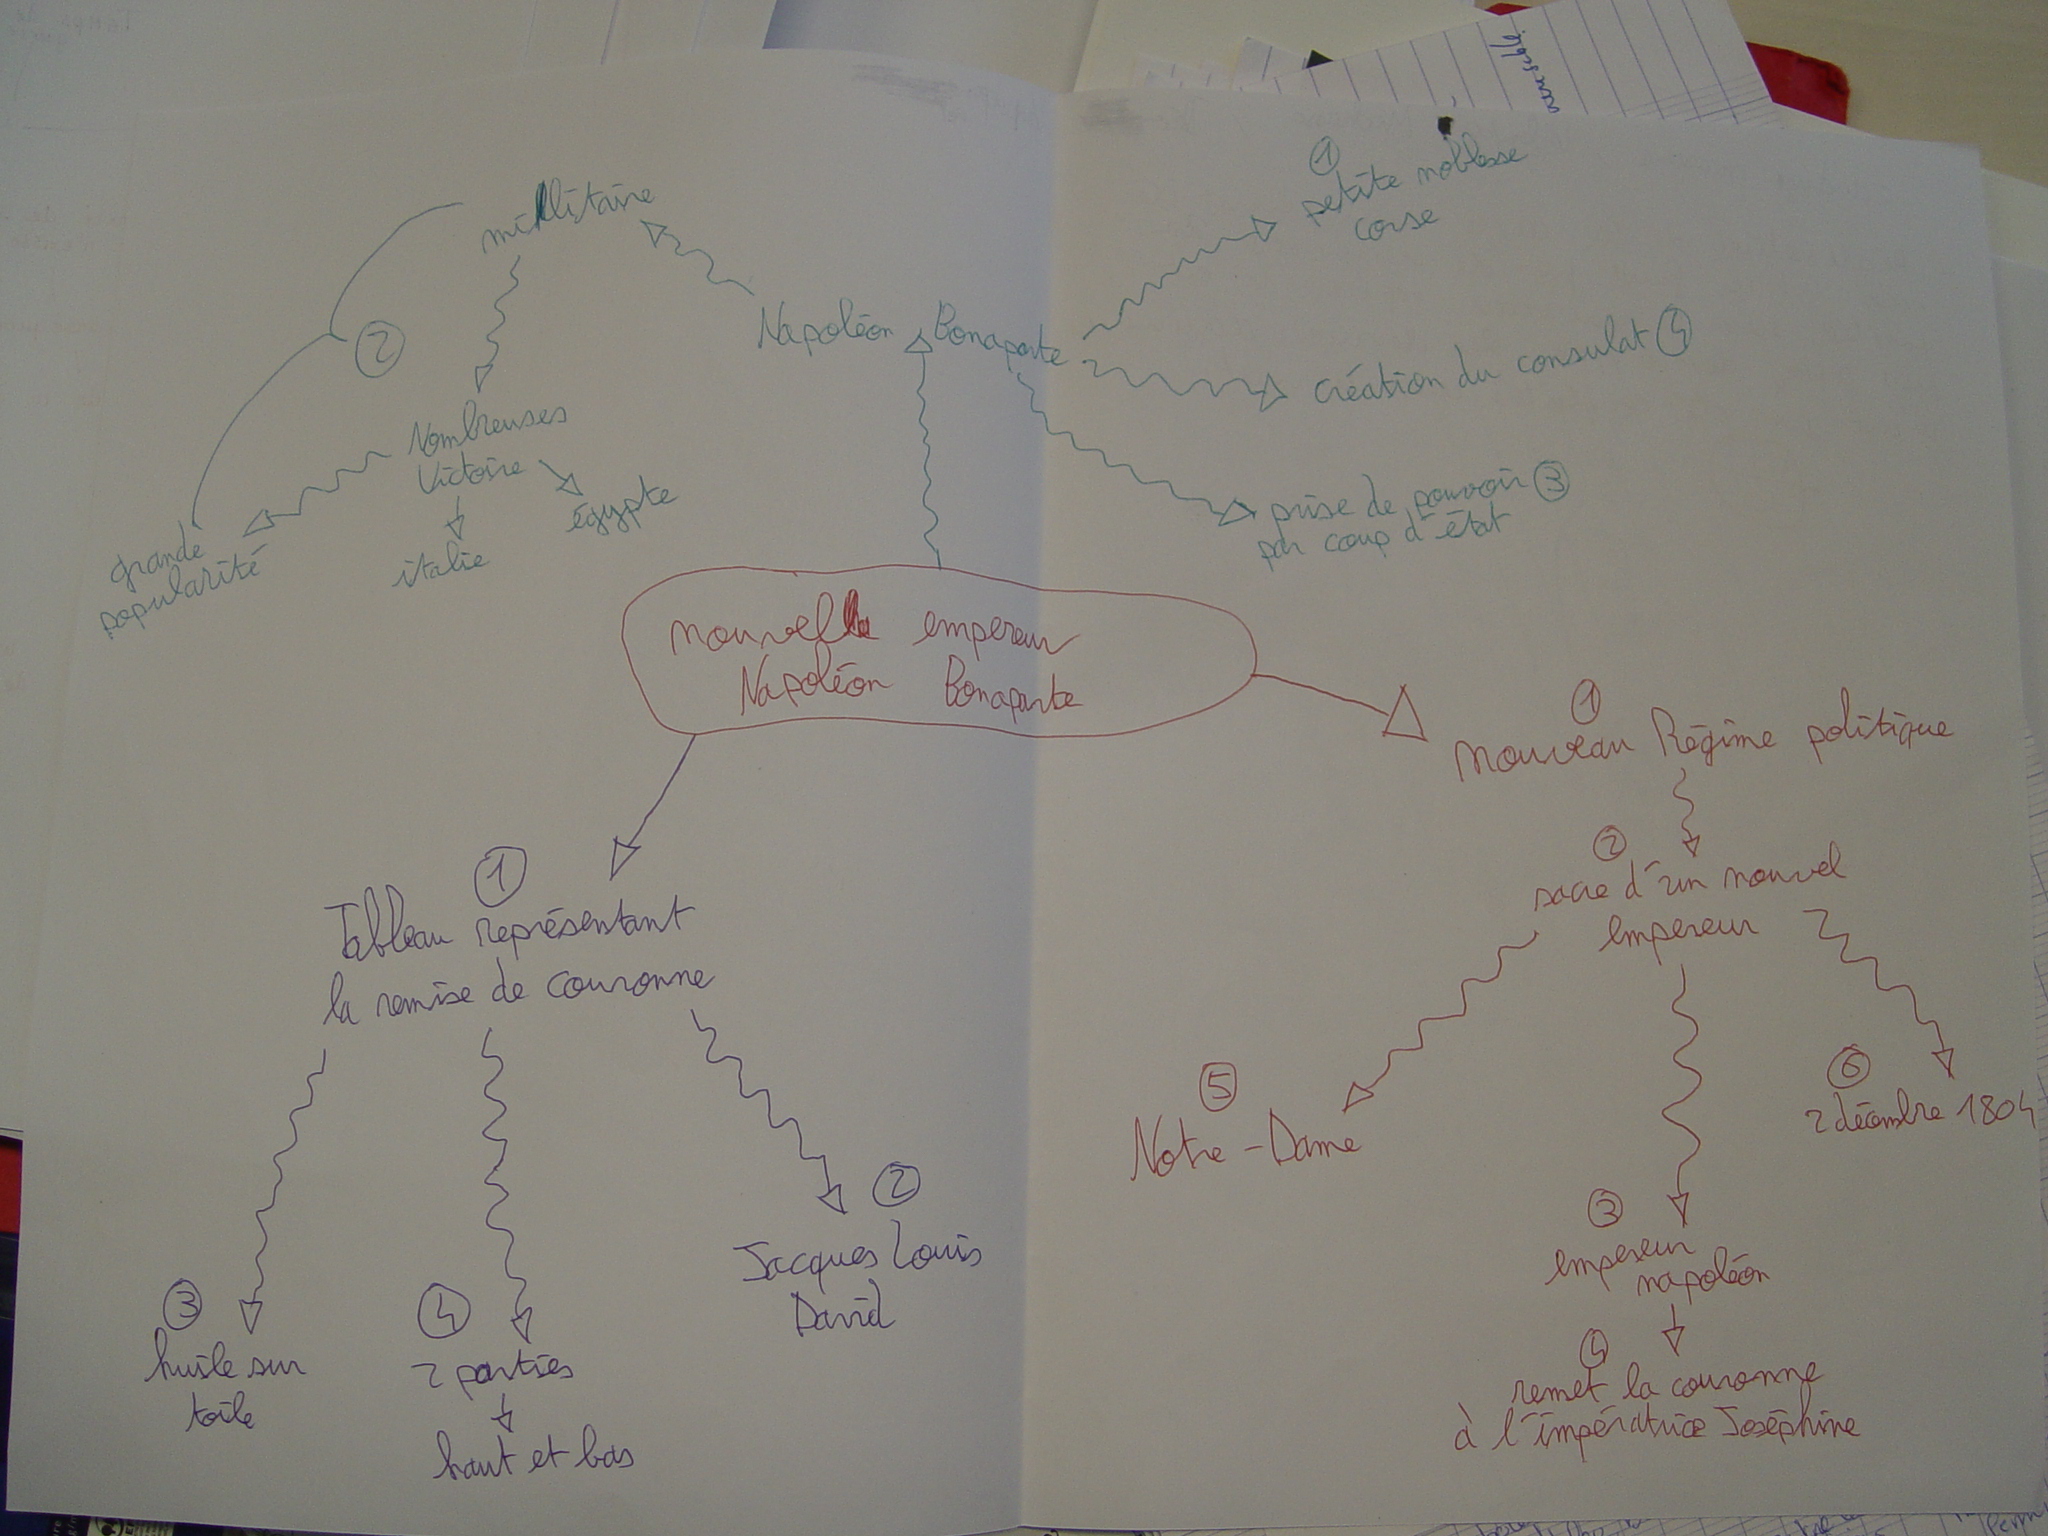 militaire
Napoléon Bonaparte
①
petite noblesse
corse
création du consulat ④
prise de pouvoir ③
par coup d'état
②
Nombreuses
Victoire
égypte
italie
grande
popularité
nouvel empereur
Napoléon Bonaparte
①
nouveau Régime politique
②
sacre d'un nouvel
empereur
⑤
Notre-Dame
③
empereur
napoléon
④
remet la couronne
à l'impératrice Joséphine
⑥
2 décembre 1804
①
Tableau représentant
la remise de couronne
③
huile sur
toile
④
2 parties
haut et bas
②
Jacques Louis
David